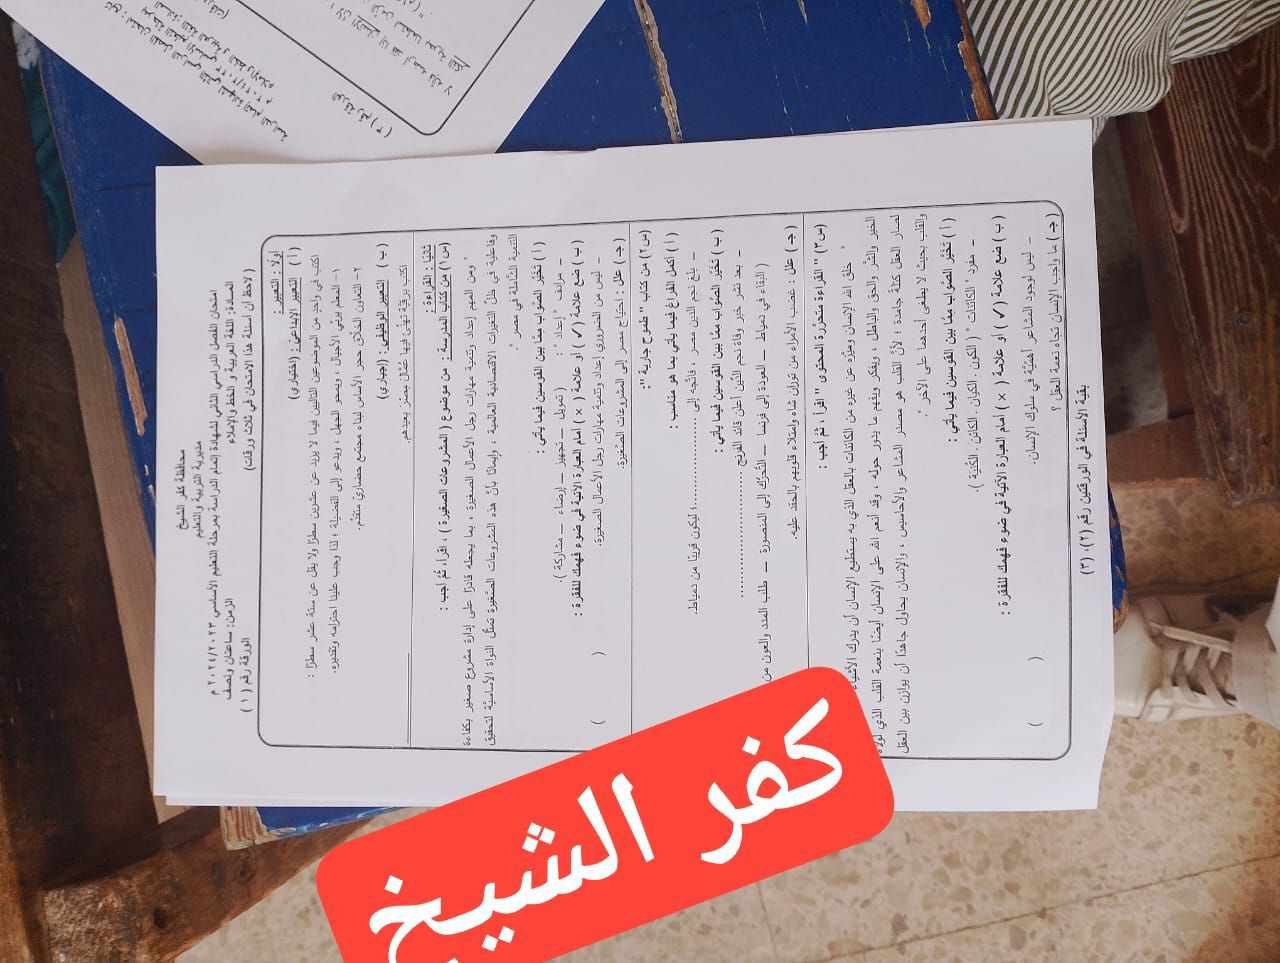 محافظة كفر الشيخ
مديرية التربية والتعليم
امتحان الفصل الدراسي الثاني لشهادة إتمام الدراسة بمرحلة التعليم الأساسي ٢٠٢٤/٢٠٢٣ م
المادة: اللغة العربية و الخط والإملاء الزمن: ساعتان ونصف
( لاحظ أن أسئلة هذا الامتحان في ثلاث ورقات) الورقة رقم ( ١ )
أولًا : التعبير :
( أ ) التعبير الإبداعي : (اختياري)
اكتب في واحد من الموضوعين التاليين فيما لا يزيد عن عشرين سطرًا ولا يقل عن ستة عشر سطرًا :
١- المعلم يربي الأجيال ، ويمحو الجهل ، ويدعو إلى الفضيلة ؛ لذا وجب علينا احترامه وتقديره.
٢- التعاون الخلاق حجر الأساس لبناء مجتمع حضاري متقدم.
( ب ) التعبير الوظيفي : (إجباري)
اكتب برقية تهنئ فيها عمال مصر بعيدهم.
ثانيًا : القراءة :
(س١) من كتاب المدرسة : من موضوع ( المشروعات الصغيرة ) ، اقرأ، ثم أجب :
" ومن المهم إعداد وتنمية مهارات رجل الأعمال الصغيرة ، بما يجعله قادرًا على إدارة مشروع صغير بكفاءة
وفاعلية في ظل التغيرات الاقتصادية العالمية ، وإيمانًا بأن هذه المشروعات الصغيرة تمثل النواة الأساسية لتحقيق
التنمية الشاملة في مصر ".
( أ ) تخير الصواب مما بين القوسين فيما يأتي :
ــ مرادف " إعداد " : ( تمويل ــ تجهيز ــ إرضاء ــ مشاركة )
( ب ) ضع علامة ( ✓ ) أو علامة ( × ) أمام العبارة الآتية في ضوء فهمك للفقرة :
ــ ليس من الضروري إعداد وتنمية مهارات رجل الأعمال الصغيرة. ( )
( جـ ) علل : احتياج مصر إلى المشروعات الصغيرة.
(س٢) من كتاب " طموح جارية " :
( أ ) أكمل الفراغ فيما يأتي بما هو مناسب :
ــ بلغ نجم الدين مصر ، فاتجه إلى ........................ ؛ ليكون قريبًا من دمياط.
( ب ) تخير الصواب مما بين القوسين فيما يأتي :
ــ بعد نشر خبر وفاة نجم الدين أعلن قائد الفرنج ........................
( البقاء في دمياط ــ العودة إلى فرنسا ــ التحرك إلى المنصورة ــ طلب المدد والعون من
( جـ ) علل : غضب الأمراء من توران شاه وامتلاء قلوبهم بالحقد عليه.
(س٣) " القراءة متحررة المحتوى " اقرأ ، ثم أجب :
" خلق الله الإنسان وميزه عن غيره من الكائنات بالعقل الذي به يستطيع الإنسان أن يدرك الأشياء
الخير والشر والحق والباطل ، ويفكر ويفهم ما يدور حوله ، وقد أنعم الله على الإنسان أيضًا بنعمة القلب الذي لولاه
لصار العقل كتلة جامدة ؛ لأن القلب هو مصدر المشاعر والأحاسيس ، والإنسان يحاول جاهدًا أن يوازن بين العقل
والقلب بحيث لا يطغى أحدهما على الآخر ".
( أ ) تخير الصواب مما بين القوسين فيما يأتي :
ــ مفرد " الكائنات " ( الكون . الكيان . الكائن . الكينة ).
( ب ) ضع علامة ( ✓ ) أو علامة ( × ) أمام العبارة الآتية في ضوء فهمك للفقرة :
ــ ليس لوجود المشاعر أهمية في سلوك الإنسان. ( )
( جـ ) ما واجب الإنسان تجاه نعمة العقل ؟
بقية الأسئلة في الورقتين رقم (٢)، (٣)
الورقة رقم ( ٣ )
كفر الشيخ